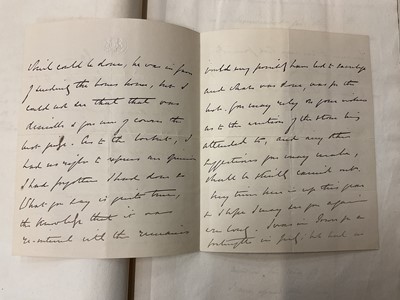 that could be done, he was in favor
of sending the bones home, but I
could not see that that was
desirable & you are of course the
best judge. As to the locket, I
had no right to express an opinion
I had forgotten I had done so
What you say is quite true,
the knowledge that it was
re-interred with the remains
would very possibly have led to sacrilege
and what was done, was for the
best. You may rely on your wishes
as to the erection of the stone being
attended to, and any other
suggestions you may make,
should be strictly carried out.
My time here is up this year
& I hope I may see you again
ere long. I was in for a
fortnight in but had no